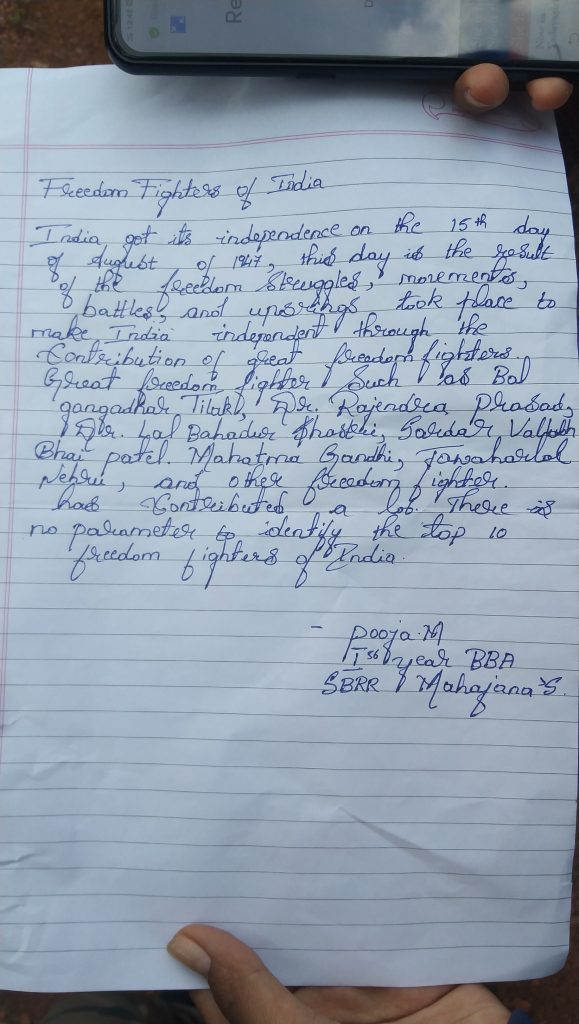 Re
Freedom Fighters of India
India got its independence on the 15th day
of August of 1947, this day is the result
of the freedom struggles, movements,
battles, and uposrings took place to
make India independent through the
Contribution of great freedom fighters.
Great freedom fighter Such as Bal
gangadhar Tilak, Dr. Rajendra Prasad,
Dr. Lal Bahadur Shastri, Sardar Vallabh
Bhai patel. Mahatma Gandhi, Jawaharlal
Nehru, and other freedom fighter.
has Contributed a lot. There is
no parameter to identify the top 10
freedom fighters of India.
- Pooja.M
Ist year BBA
SBRR Mahajana's.